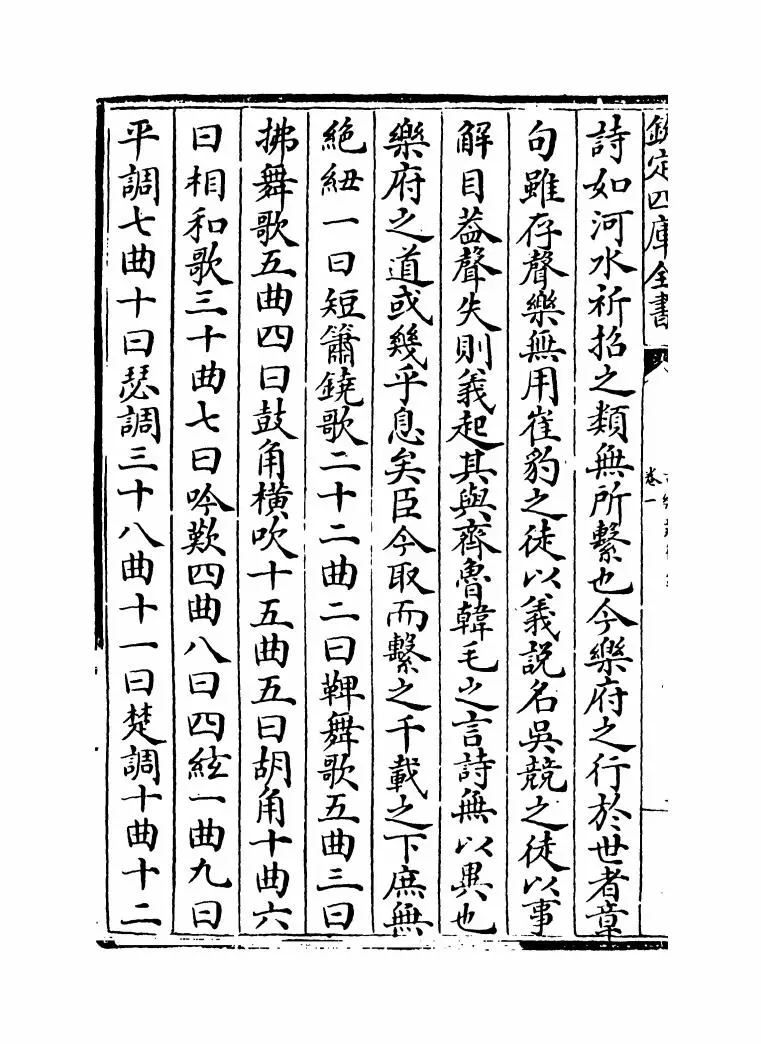 欽定四庫全書
卷一
詩如河水祈招之類無所繫也今樂府之行於世者章
句雖存聲樂無用崔豹之徒以義說名吳競之徒以事
解目葢聲失則義起其與齊魯韓毛之言詩無以異也
樂府之道或幾乎息矣臣今取而繫之千載之下庶無
絶紐一曰短簫鐃歌二十二曲二曰鞞舞歌五曲三曰
拂舞歌五曲四曰鼓角橫吹十五曲五曰胡角十曲六
曰相和歌三十曲七曰吟歎四曲八曰四絃一曲九曰
平調七曲十曰瑟調三十八曲十一曰楚調十曲十二